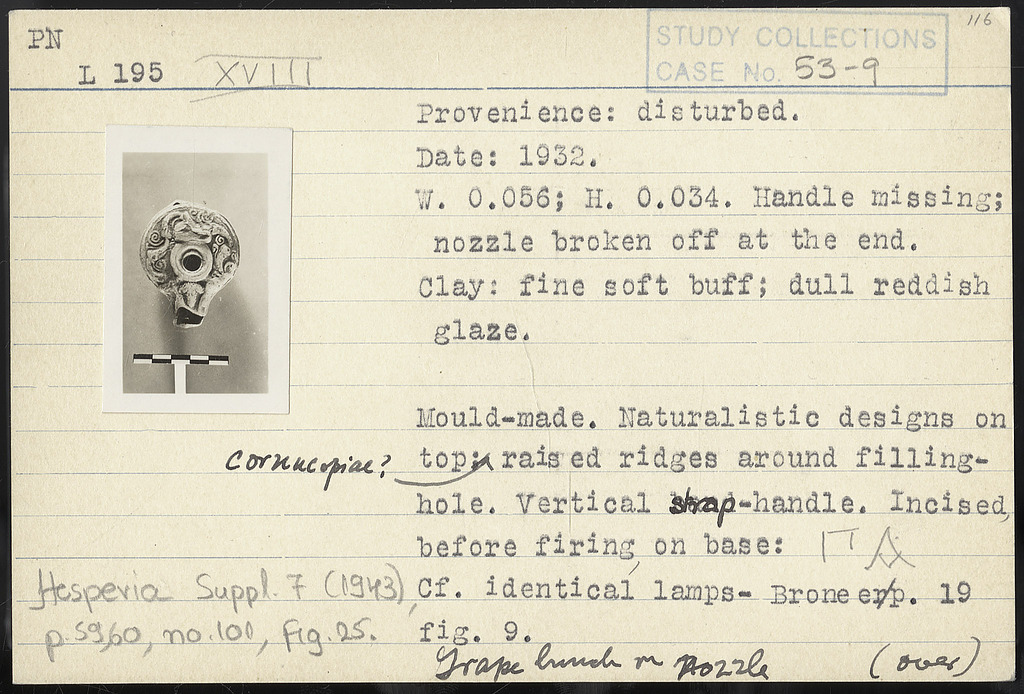 116
PN
L 195 XVIII
STUDY COLLECTIONS
CASE No. 53-9
Provenience: disturbed.
Date: 1932.
W. 0.056; H. 0.034. Handle missing;
nozzle broken off at the end.
Clay: fine soft buff; dull reddish
glaze.
Mould-made. Naturalistic designs on
cornucopiae?
top; raised ridges around filling-
hole. Vertical strap-handle. Incised,
before firing, on base: ΓΑ
Cf. identical lamps- Broneer, p. 19
fig. 9.
Hesperia Suppl. 7 (1943),
p. 59,60, no. 100, fig. 25.
Grape bunch on nozzle (over)